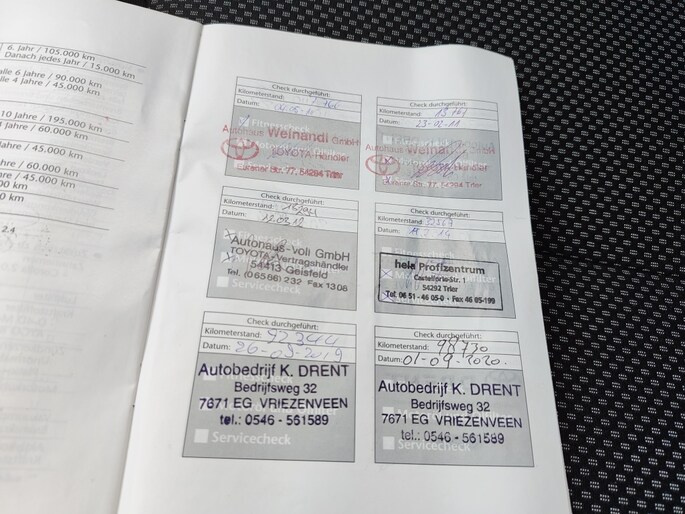 6. Jahr / 105.000 km
Danach jedes Jahr / 15.000 km
alle 6 Jahre / 90.000 km
alle 4 Jahre / 45.000 km
10 Jahre / 195.000 km
4 Jahre / 60.000 km
Jahre / 45.000 km
Jahre / 60.000 km
/ 45.000 km
0 km
2.4
Check durchgeführt:
Kilometerstand:
Datum:
Autohaus Weinandi GmbH
TOYOTA-Händler
Str. 77, 54294 Trier
Check durchgeführt:
Kilometerstand:
Datum: 23-02-11
Autohaus
Händler
Str. 77, 54294 Trier
Check durchgeführt:
Kilometerstand:
Datum: 12.03.12
Autohaus-Voli GmbH
TOYOTA-Vertragshändler
54413 Geisfeld
Tel. (06586) 232 Fax 1306
Servicecheck
Check durchgeführt:
Kilometerstand:
Datum:
hela Profizentrum
54292 Trier
Tel. 06 51 - 46 05-0 · Fax 46 05-199
Servicecheck
Check durchgeführt:
Kilometerstand: 92344
Datum: 26-03-2019
Autobedrijf K. DRENT
Bedrijfsweg 32
7671 EG VRIEZENVEEN
tel.: 0546 - 561589
Servicecheck
Check durchgeführt:
Kilometerstand: 98730
Datum: 01-09-2020.
Autobedrijf K. DRENT
Bedrijfsweg 32
7671 EG VRIEZENVEEN
tel.: 0546 - 561589
Servicecheck